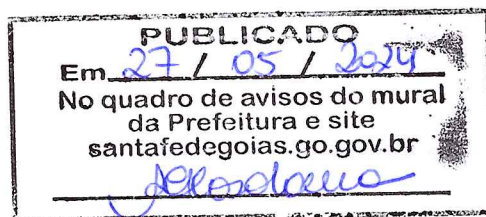 PUBLICADO
Em 27 / 05 / 2024
No quadro de avisos do mural
da Prefeitura e site
santafedegoias.go.gov.br